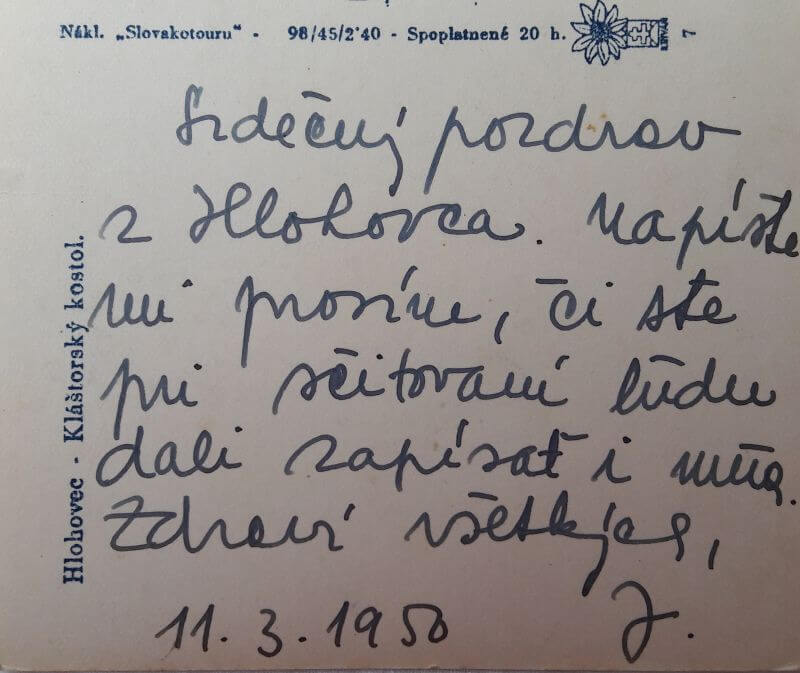 Nákl. „Slovakotouru“ - 98/45/2˙40 - Spoplatnené 20 h.
7
Hlohovec - Kláštorský kostol.
Srdečný pozdrav
z Hlohovca. Napíšte
mi prosím, či ste
pri sčitovaní ľudu
dali zapísať i mňa.
Zdraví všetkých,
J.
11. 3. 1950